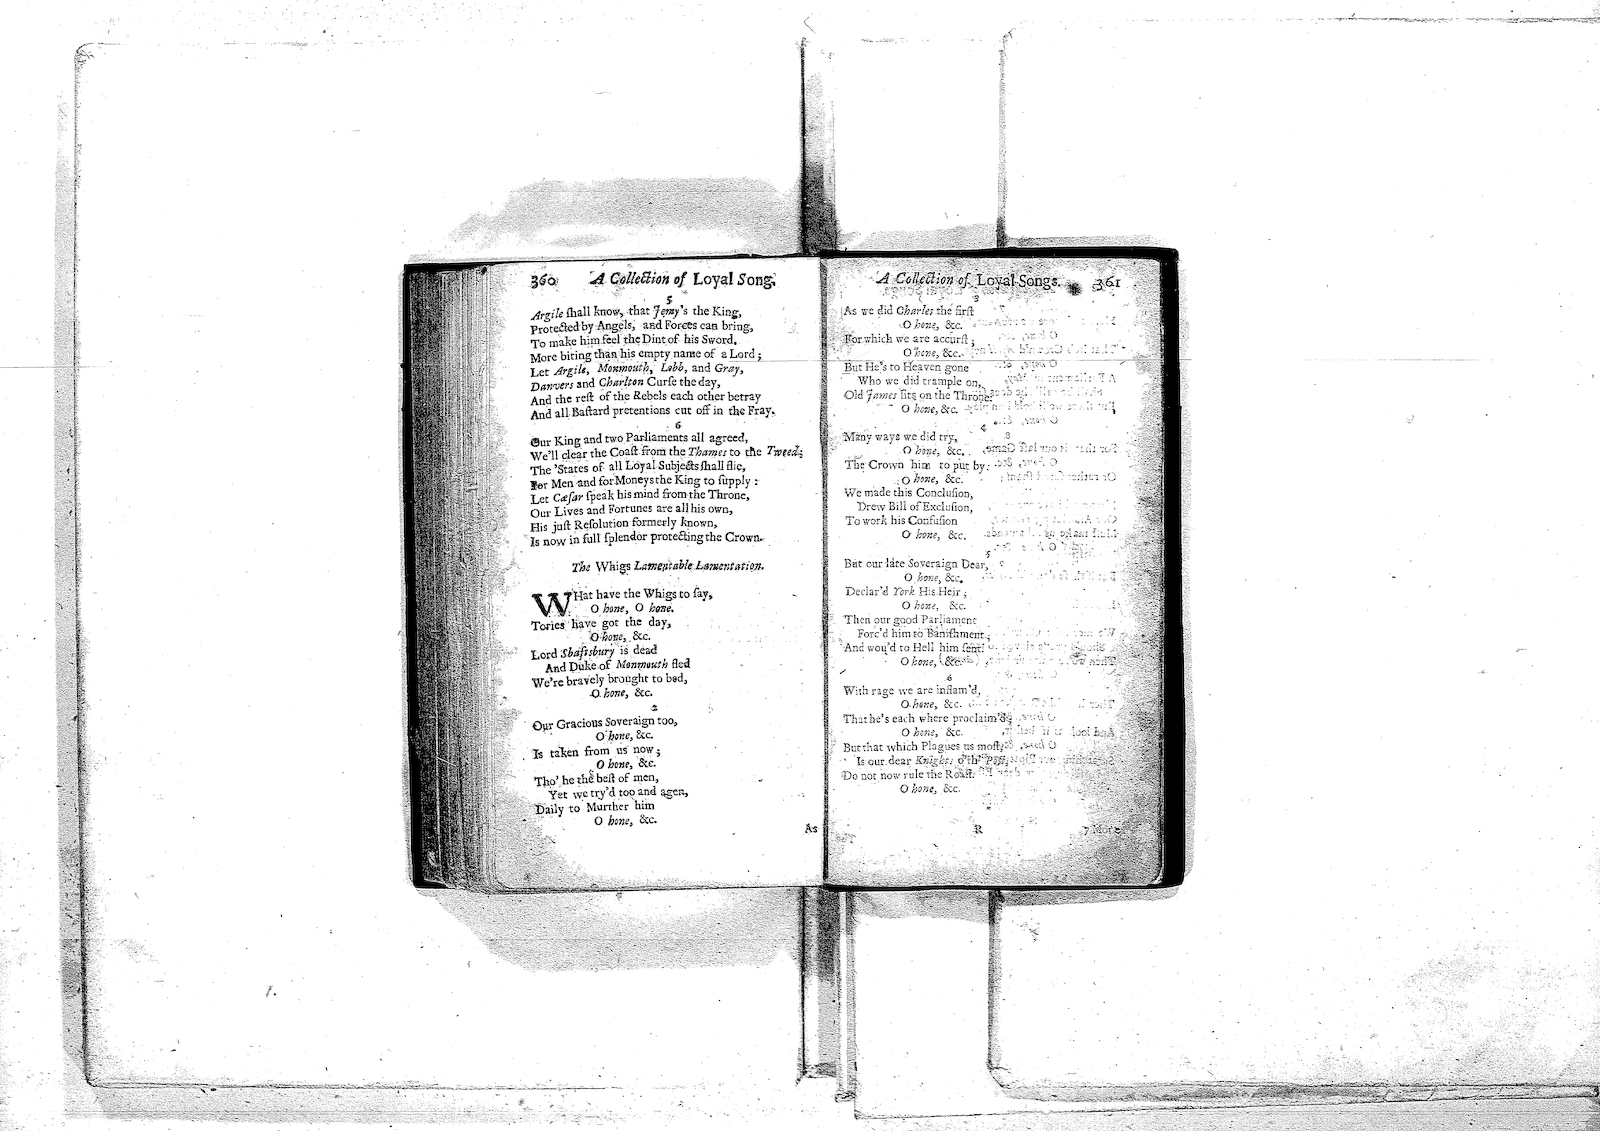 360 A Collection of Loyal Song.
5
Argile ſhall know, that Jemy's the King,
Protected by Angels, and Forces can bring,
To make him feel the Dint of his Sword.
More biting than his empty name of a Lord;
Let Argile, Monmouth, Lobb, and Gray,
Danvers and Charlton Curſe the day,
And the reſt of the Rebels each other betray
And all Baſtard pretentions cut off in the Fray.
6
Our King and two Parliaments all agreed,
We'll clear the Coaſt from the Thames to the Tweed;
The 'States of all Loyal Subjects ſhall flie,
For Men and for Moneys the King to ſupply:
Let Cæſar ſpeak his mind from the Throne,
Our Lives and Fortunes are all his own,
His juſt Reſolution formerly known,
Is now in full ſplendor protecting the Crown.
The Whigs Lamentable Lamentation.
WHat have the Whigs to ſay,
O hone, O hone.
Tories have got the day,
O hone, &c.
Lord Shaftsbury is dead
And Duke of Monmouth fled
We're bravely brought to bed,
O hone, &c.
2
Our Gracious Soveraign too,
O hone, &c.
Is taken from us now;
O hone, &c.
Tho' he the beſt of men,
Yet we try'd too and agen,
Daily to Murther him
O hone, &c.
As
A Collection of Loyal Songs. 361
3
As we did Charles the firſt
O hone, &c.
For which we are accurſt;
O hone, &c.
But He's to Heaven gone
Who we did trample on,
Old James ſits on the Throne.
O hone, &c.
4
Many ways we did try,
O hone, &c.
The Crown him to put by:
O hone, &c.
We made this Concluſion,
Drew Bill of Excluſion,
To work his Confuſion
O hone, &c.
5
But our late Soveraign Dear,
O hone, &c.
Declar'd York His Heir;
O hone, &c.
Then our good Parliament
Forc'd him to Baniſhment;
And wou'd to Hell him ſent!
O hone, &c.
6
With rage we are inflam'd,
O hone, &c.
That he's each where proclaim'd;
O hone, &c.
But that which Plagues us moſt,
Is our dear Knights o'th' Poſt,
Do not now rule the Roaſt.
O hone, &c.
R 7 More